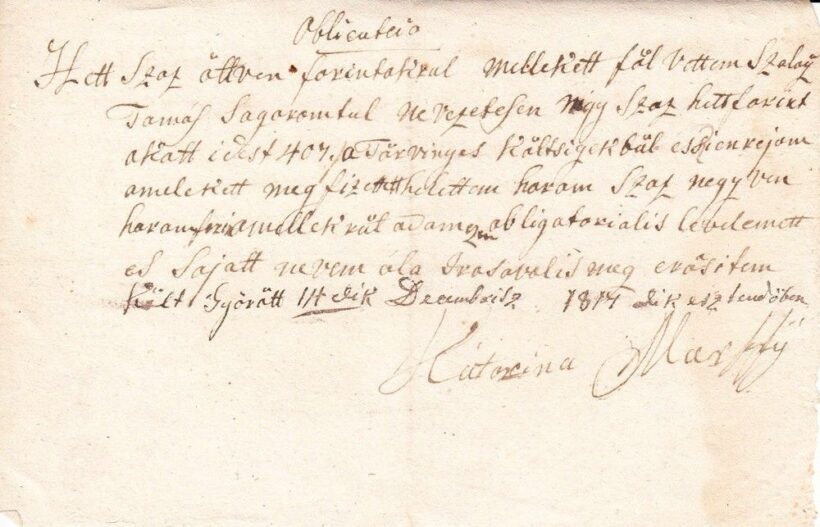 Oblicatcio
Hett Szaz ättven forintakrul mellekett föl Vettem Szalay
Tamás Sagoromtul nevezetesen nigy Szaz hett forint
akatt idest 407 Tärvinges Kältsigekbül es
amelekett meg fizetett helettem harom Szaz negy ven
harom amellekrül adam obligatorialis levelemett
es Sajatt nevem ala Irasavalis meg erösitem
Költ Györätt 14 dik Decembrisz 1817 dik esztendöben
Katarina